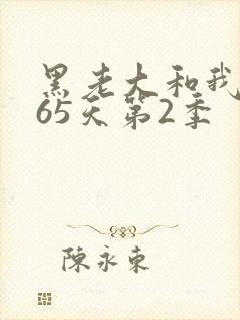 黑老大和我
65天第2季
陳永東